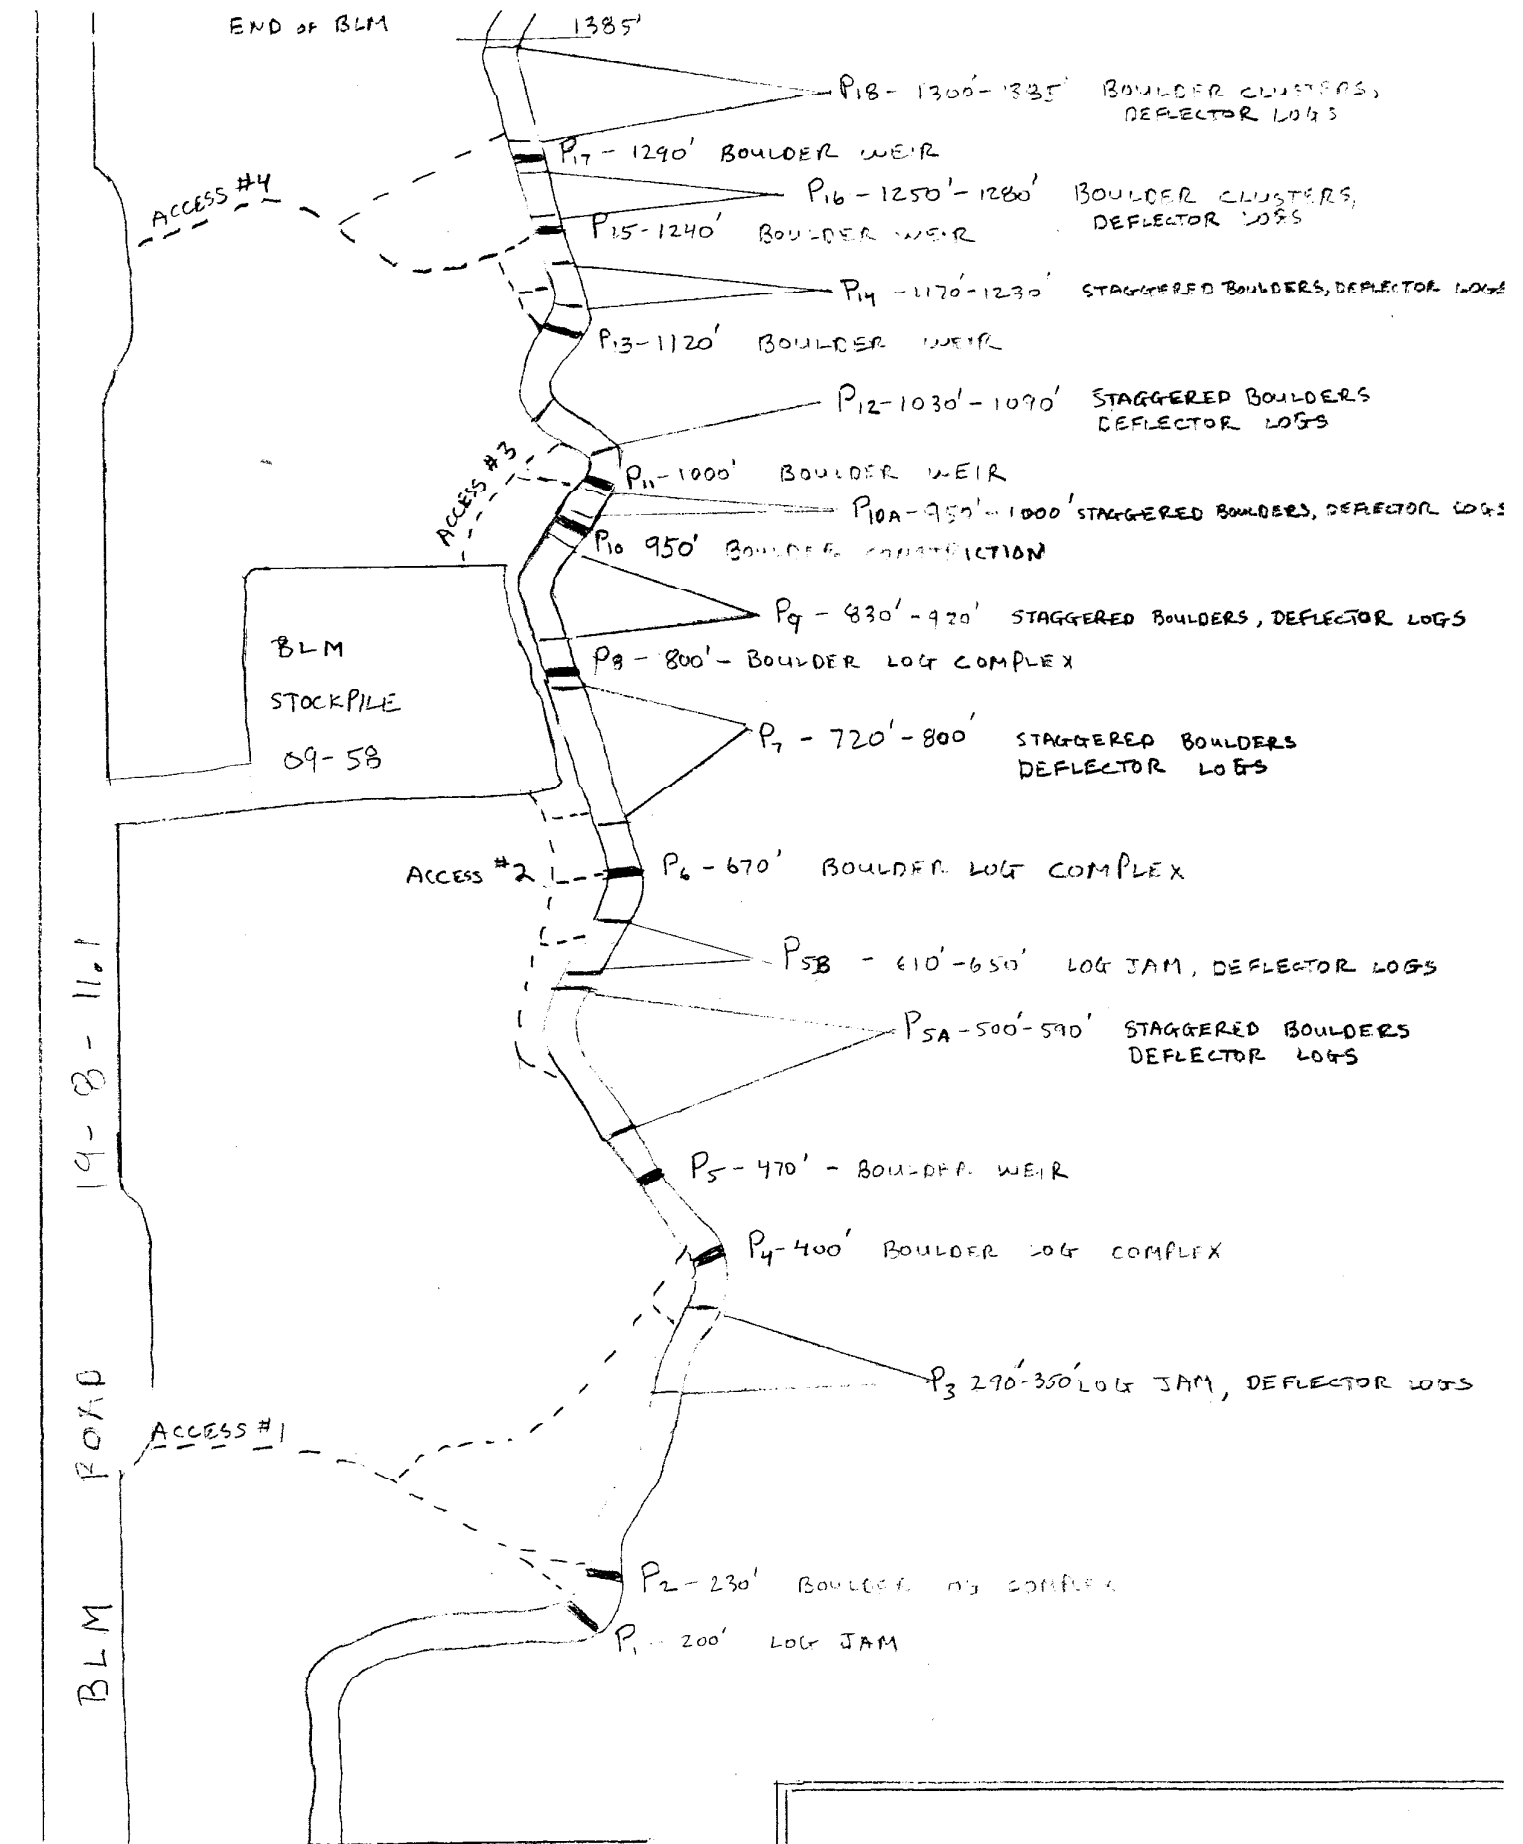 END OF BLM 1385'
P18 - 1300'-1385' BOULDER CLUSTERS,
DEFLECTOR LOGS
P17 - 1290' BOULDER WEIR
ACCESS #4
P16 - 1250'-1280' BOULDER CLUSTERS,
DEFLECTOR LOGS
P15-1240' BOULDER WEIR
P14 -1170'-1230' STAGGERED BOULDERS, DEFLECTOR LOGS
P13-1120' BOULDER WEIR
P12-1030'-1090' STAGGERED BOULDERS
DEFLECTOR LOGS
ACCESS #3
P11-1000' BOULDER WEIR
P10A-950'-1000' STAGGERED BOULDERS, DEFLECTOR LOGS
P10 950' BOULDER CONSTRICTION
P9 - 830'-920' STAGGERED BOULDERS, DEFLECTOR LOGS
BLM
STOCKPILE
09-58
P8 - 800' - BOULDER LOG COMPLEX
P7 - 720'-800' STAGGERED BOULDERS
DEFLECTOR LOGS
ACCESS #2
P6 - 670' BOULDER LOG COMPLEX
P5B - 610'-650' LOG JAM, DEFLECTOR LOGS
P5A-500'-590' STAGGERED BOULDERS
DEFLECTOR LOGS
P5-470' - BOULDER WEIR
P4-400' BOULDER LOG COMPLEX
P3 290'-350' LOG JAM, DEFLECTOR LOGS
ACCESS #1
P2-230' BOULDER LOG COMPLEX
P1 - 200' LOG JAM
BLM ROAD 19-8-11.1